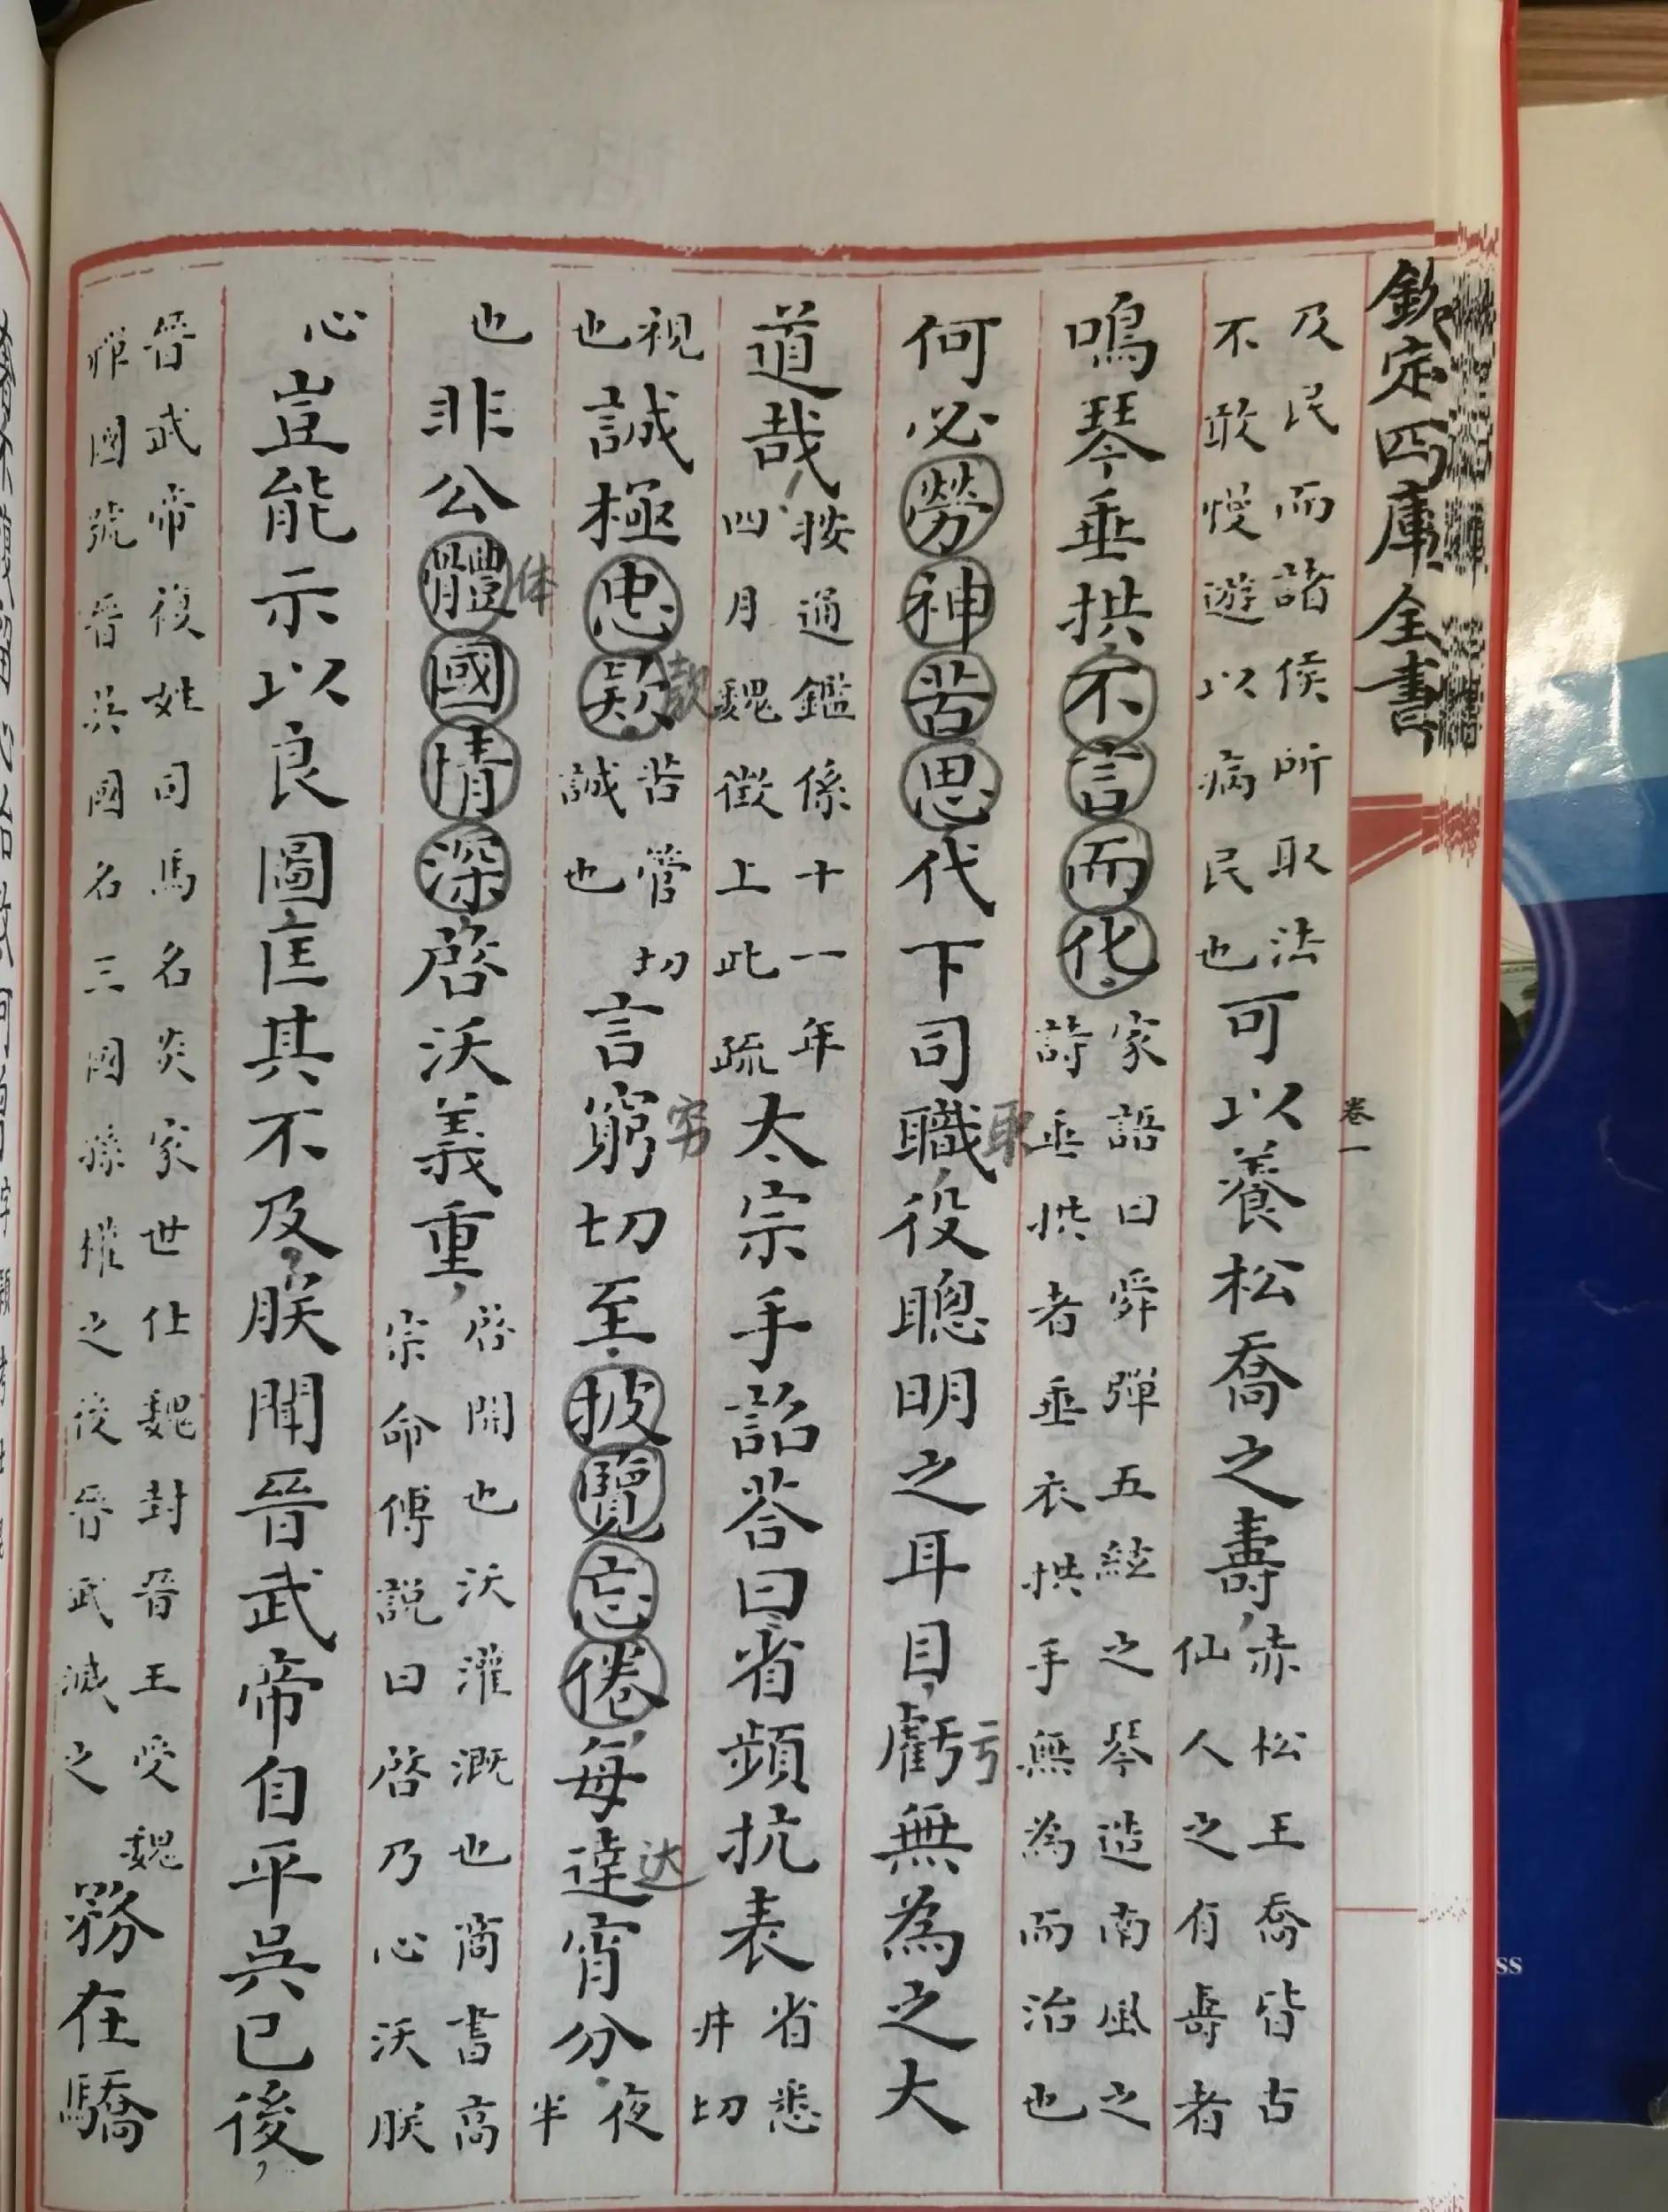 欽定四庫全書
卷一
及民而諸侯所取法
不敢慢遊以病民也
可以養松喬之壽，
赤松王喬皆古
仙人之有壽者
鳴琴垂拱不言而化.
家語曰舜彈五絃之琴造南風之
詩垂拱者垂衣拱手無為而治也
何必勞神苦思代下司職役聰明之耳目，虧無為之大
亏
道哉
按通鑑係十一年
四月魏徵上此疏
太宗手詔荅曰省頻抗表
省悉
井切
視
也
誠極忠欵
款
苦管切
誠也
言窮切至.披覽忘倦，每達宵分.
穷
达
夜
半
也
非公體國情深啓沃義重，
体
啓開也沃灌溉也商書高
宗命傅説曰啓乃心沃朕
心
豈能示以良圖匡其不及.朕聞晉武帝自平吳已後，
晉武帝複姓司馬名炎家世仕魏封晉王受魏
禪國號晉吳國名三國孫權之後晉武滅之
務在驕
ss